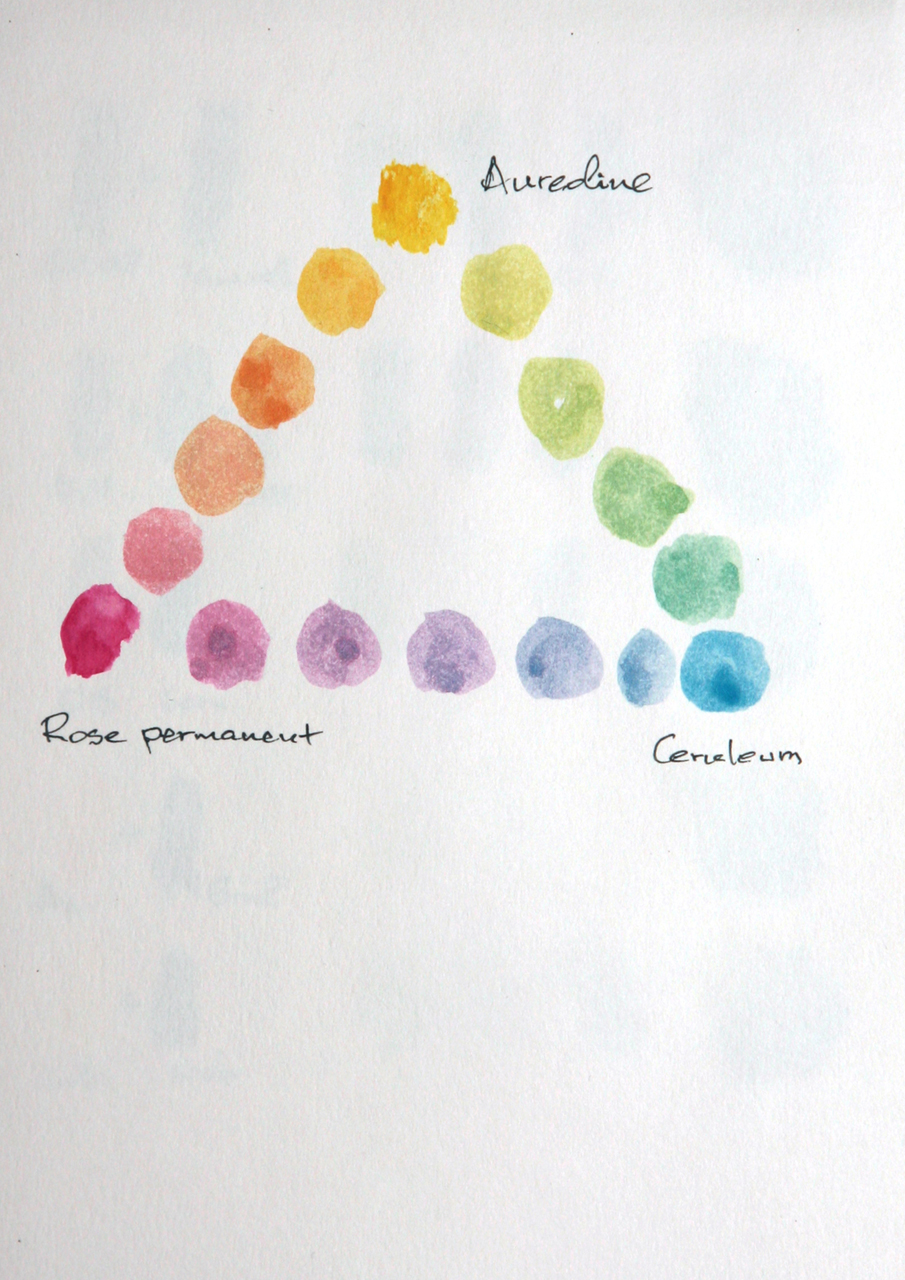 Auredine
Rose permanent
Ceruleum